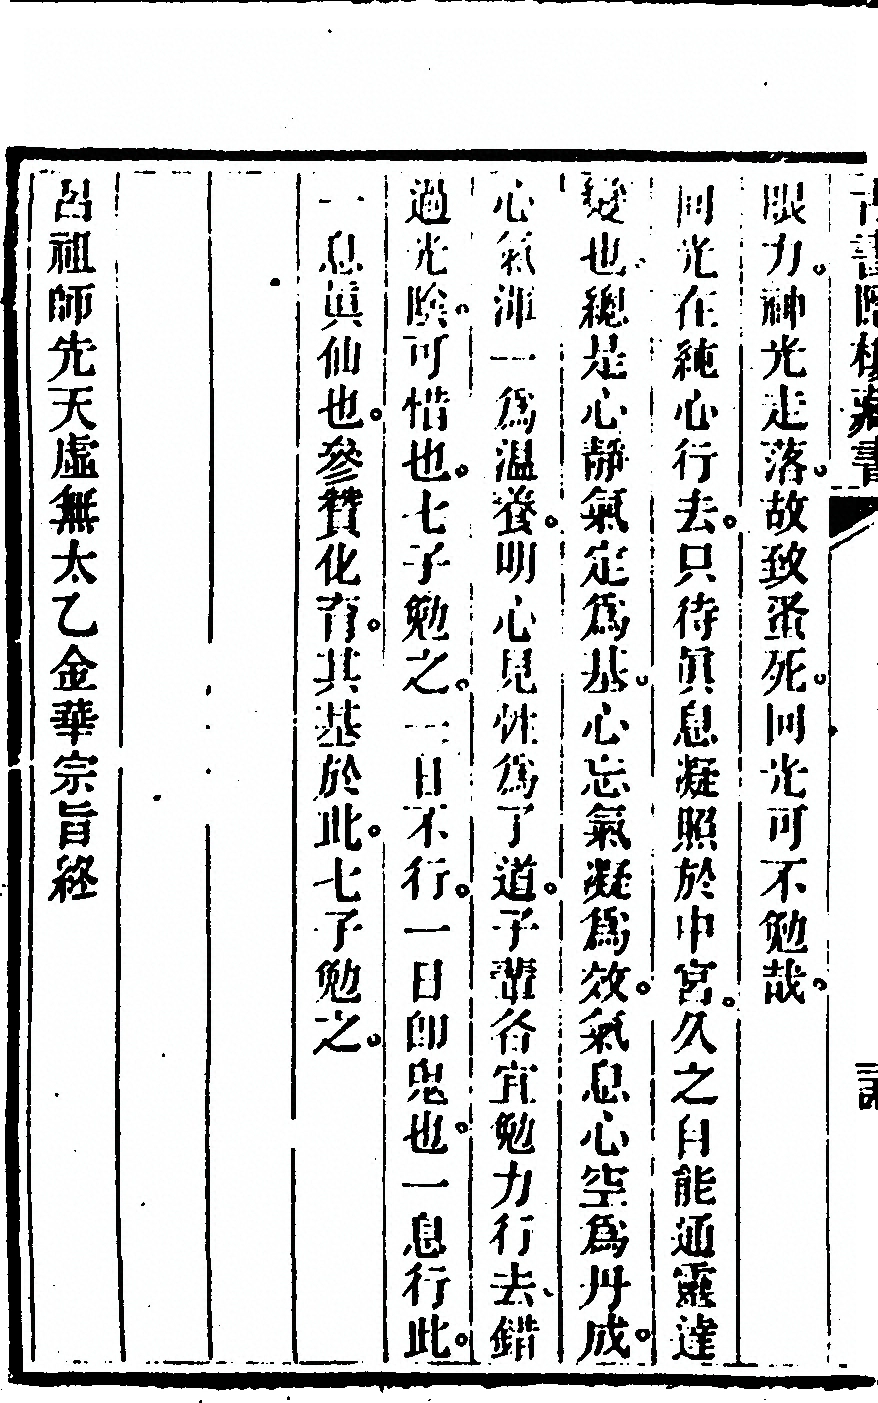 古書隱樓藏書
眼力。神光走落。故致蚤死。回光可不勉哉。
回光在純心行去。只待眞息凝照於中宮。久之自能通靈達
變也總是心靜氣定爲基。心忘氣凝爲效。氣息心空爲丹成。
心氣渾一爲温養。明心見性爲了道。子輩各宜勉力行去、錯
過光陰。可惜也。七子勉之。一日不行。一日卽鬼也。一息行此。
一息眞仙也。參贊化育。其基於此。七子勉之。
呂祖師先天虛無太乙金華宗旨終